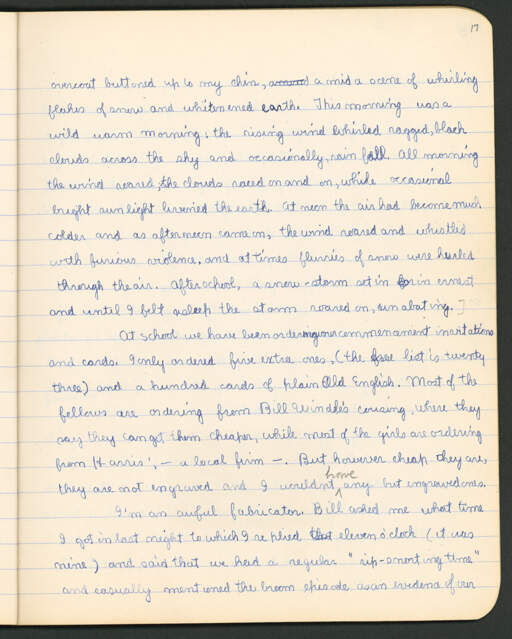 17
overcoat buttoned up to my chin, around a mid a scene of whirling
flakes of snow and whitenened earth. This morning was a
wild warm morning; the rising wind whirled ragged, black
clouds across the sky and occasionally, rain fall. All morning
the wind roared, the clouds raced on and on, while occasional
bright sunlight the earth. At noon the air had become much
colder and as afternoon came on, the wind roared and whistled
with furious violence, and at times flurries of snow were hurled
through the air. After school, a snow-storm set in in ernest
and until I felt asleep the storm roared on, unabating.]
At school we have been ordering our commenament invitations
and cards. I only ordered five extra ones, (the free list is twenty
three) and a hundred cards of plain Old English. Most of the
fellows are ordering from Bill Windle's cousing, where they
say they can get them cheaper, while most of the girls are ordering
from Harris', — a local firm —. But however cheap they are,
they are not engraved and I wouldn't have any but engraved ones.
I'm an awful fabricator. Bill asked me what time
I got in last night to which I replied that eleven o'clock (it was
nine) and said that we had a regular "rip-snorting time"
and casually mentioned the broom episode as an evidence of our